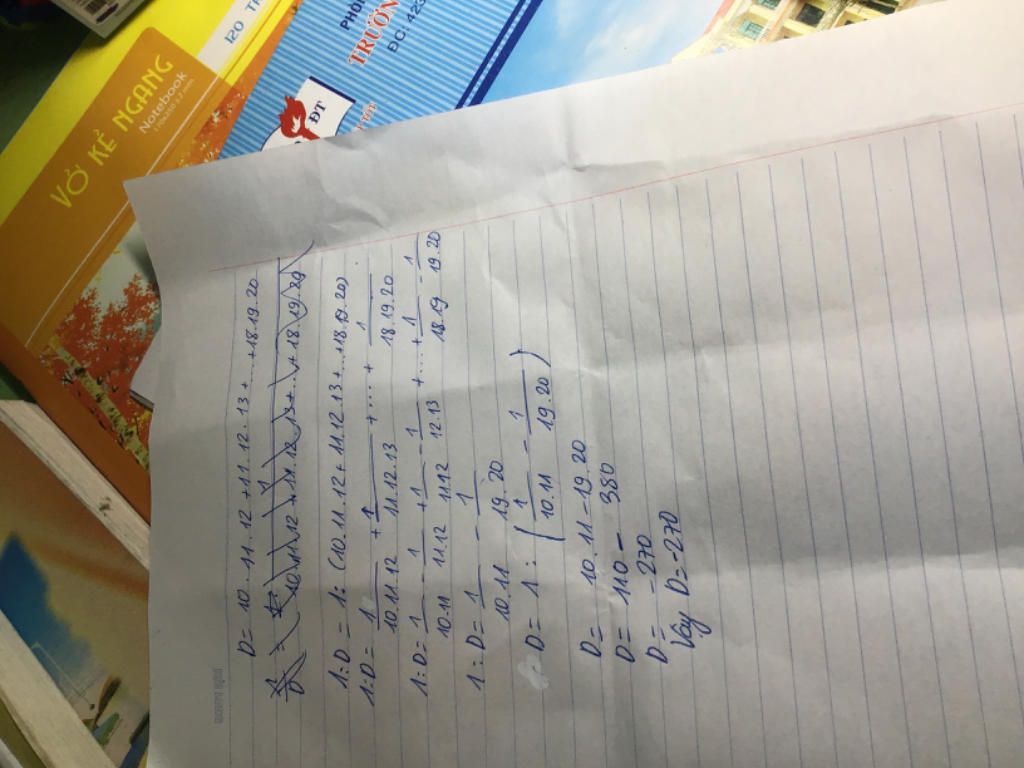 120 TR
VỞ KẺ NGANG
Notebook
PHÒN
TRƯỜN
ĐC: 423
ĐT
D = 10.11.12 + 11.12.13 + ... + 18.19.20
1:D = 1:(10.11.12 + 11.12.13 + ... + 18.19.20)
1:D = 1/10.11.12 + 1/11.12.13 + ... + 1/18.19.20
1:D = 1/10.11 - 1/11.12 + 1/11.12 - 1/12.13 + ... + 1/18.19 - 1/19.20
1:D = 1/10.11 - 1/19.20
D = 1:(1/10.11 - 1/19.20)
D = 10.11 - 19.20
D = 110 - 380
D = -270
Vay D = -270